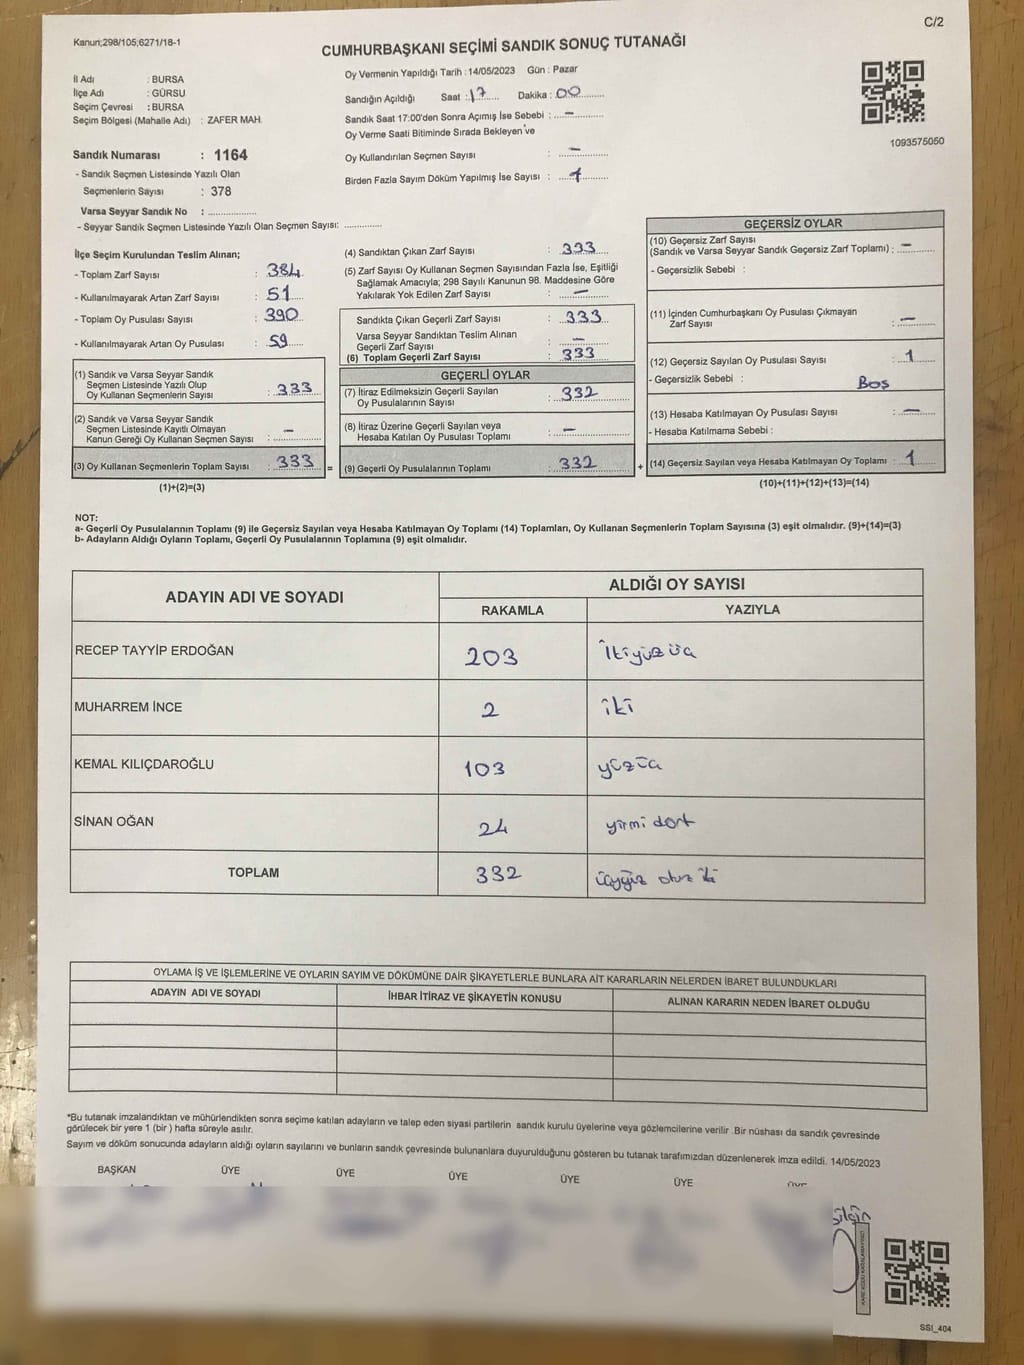 C/2
Kanun;298/105;6271/18-1
CUMHURBAŞKANI SEÇİMİ SANDIK SONUÇ TUTANAĞI
İl Adı : BURSA
İlçe Adı : GÜRSU
Seçim Çevresi : BURSA
Seçim Bölgesi (Mahalle Adı) : ZAFER MAH.
Sandık Numarası : 1164
- Sandık Seçmen Listesinde Yazılı Olan
Seçmenlerin Sayısı : 378
Varsa Seyyar Sandık No : ..................
- Seyyar Sandık Seçmen Listesinde Yazılı Olan Seçmen Sayısı: ..............
Oy Vermenin Yapıldığı Tarih : 14/05/2023 Gün : Pazar
Sandığın Açıldığı Saat : 17 Dakika : 00
Sandık Saat 17:00'den Sonra Açımış İse Sebebi : –
Oy Verme Saati Bitiminde Sırada Bekleyen ve
Oy Kullandırılan Seçmen Sayısı : –
Birden Fazla Sayım Döküm Yapılmış İse Sayısı : 1
1093575050
İlçe Seçim Kurulundan Teslim Alınan;
- Toplam Zarf Sayısı : 384
- Kullanılmayarak Artan Zarf Sayısı : 51
- Toplam Oy Pusulası Sayısı : 390
- Kullanılmayarak Artan Oy Pusulası : 59
(1) Sandık ve Varsa Seyyar Sandık
Seçmen Listesinde Yazılı Olup
Oy Kullanan Seçmenlerin Sayısı : 333
(2) Sandık ve Varsa Seyyar Sandık
Seçmen Listesinde Kayıtlı Olmayan
Kanun Gereği Oy Kullanan Seçmen Sayısı : –
(3) Oy Kullanan Seçmenlerin Toplam Sayısı : 333
(1)+(2)=(3)
(4) Sandıktan Çıkan Zarf Sayısı : 333
(5) Zarf Sayısı Oy Kullanan Seçmen Sayısından Fazla İse, Eşitliği
Sağlamak Amacıyla; 298 Sayılı Kanunun 98. Maddesine Göre
Yakılarak Yok Edilen Zarf Sayısı : –
Sandıkta Çıkan Geçerli Zarf Sayısı : 333
Varsa Seyyar Sandıktan Teslim Alınan
Geçerli Zarf Sayısı : –
(6) Toplam Geçerli Zarf Sayısı : 333
GEÇERLİ OYLAR
(7) İtiraz Edilmeksizin Geçerli Sayılan
Oy Pusulalarının Sayısı : 332
(8) İtiraz Üzerine Geçerli Sayılan veya
Hesaba Katılan Oy Pusulası Toplamı : –
= (9) Geçerli Oy Pusulalarının Toplamı : 332 +
GEÇERSİZ OYLAR
(10) Geçersiz Zarf Sayısı
(Sandık ve Varsa Seyyar Sandık Geçersiz Zarf Toplamı) : –
- Geçersizlik Sebebi :
(11) İçinden Cumhurbaşkanı Oy Pusulası Çıkmayan
Zarf Sayısı : –
(12) Geçersiz Sayılan Oy Pusulası Sayısı : 1
- Geçersizlik Sebebi : Boş
(13) Hesaba Katılmayan Oy Pusulası Sayısı : –
- Hesaba Katılmama Sebebi :
(14) Geçersiz Sayılan veya Hesaba Katılmayan Oy Toplamı : 1
(10)+(11)+(12)+(13)=(14)
NOT:
a- Geçerli Oy Pusulalarının Toplamı (9) ile Geçersiz Sayılan veya Hesaba Katılmayan Oy Toplamı (14) Toplamları, Oy Kullanan Seçmenlerin Toplam Sayısına (3) eşit olmalıdır. (9)+(14)=(3)
b- Adayların Aldığı Oyların Toplamı, Geçerli Oy Pusulalarının Toplamına (9) eşit olmalıdır.
ADAYIN ADI VE SOYADI
ALDIĞI OY SAYISI
RAKAMLA YAZIYLA
RECEP TAYYİP ERDOĞAN 203 İkiyüzüç
MUHARREM İNCE 2 iki
KEMAL KILIÇDAROĞLU 103 yüzüç
SİNAN OĞAN 24 yirmi dört
TOPLAM 332 üçyüz otuz iki
OYLAMA İŞ VE İŞLEMLERİNE VE OYLARIN SAYIM VE DÖKÜMÜNE DAİR ŞİKAYETLERLE BUNLARA AİT KARARLARIN NELERDEN İBARET BULUNDUKLARI
ADAYIN ADI VE SOYADI İHBAR İTİRAZ VE ŞİKAYETİN KONUSU ALINAN KARARIN NEDEN İBARET OLDUĞU
*Bu tutanak imzalandıktan ve mühürlendikten sonra seçime katılan adayların ve talep eden siyasi partilerin sandık kurulu üyelerine veya gözlemcilerine verilir. Bir nüshası da sandık çevresinde
görülecek bir yere 1 (bir ) hafta süreyle asılır.
Sayım ve döküm sonucunda adayların aldığı oyların sayılarını ve bunların sandık çevresinde bulunanlara duyurulduğunu gösteren bu tutanak tarafımızdan düzenlenerek imza edildi. 14/05/2023
BAŞKAN ÜYE ÜYE ÜYE ÜYE ÜYE
SSI_404